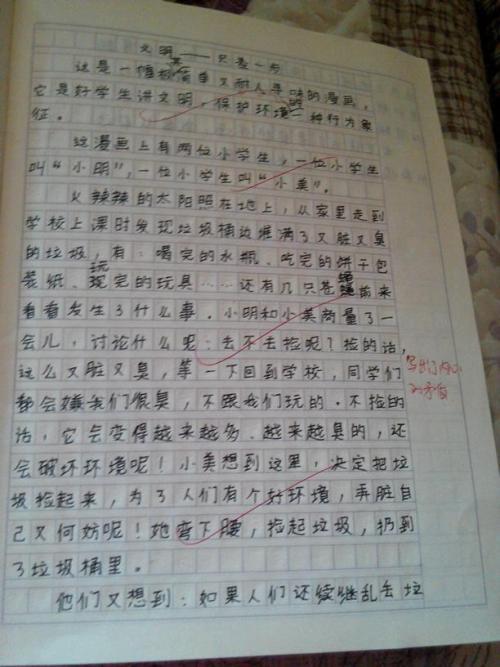 文明——只差一步
这是一幅极其简单又耐人寻味的漫画，
它是好学生讲文明，保护环境的一种行为象
征。
这漫画上有两位小学生，一位小学生
叫“小明”，一位小学生叫“小美”。
火辣辣的太阳照在地上，从家里走到
学校上课时发现垃圾桶边堆满了又脏又臭
的垃圾，有：喝完的水瓶、吃完的饼干包
装纸、玩完的玩具……还有几只苍蝇前来
看看发生了什么事。小明和小美商量了一
会儿，讨论什么呢：去不去捡呢？捡的话，
这么又脏又臭，等一下回到学校，同学们
都会嫌我们很臭，不跟我们玩的。不捡的
话，它会变得越来越多、越来越臭的，还
会破坏环境呢！小美想到这里，决定把垃
圾捡起来，为了人们有个好环境，弄脏自
己又何妨呢！她弯下腰，捡起垃圾，扔到
了垃圾桶里。
他们又想到：如果人们还续继乱丢垃
写出了内心
的矛盾